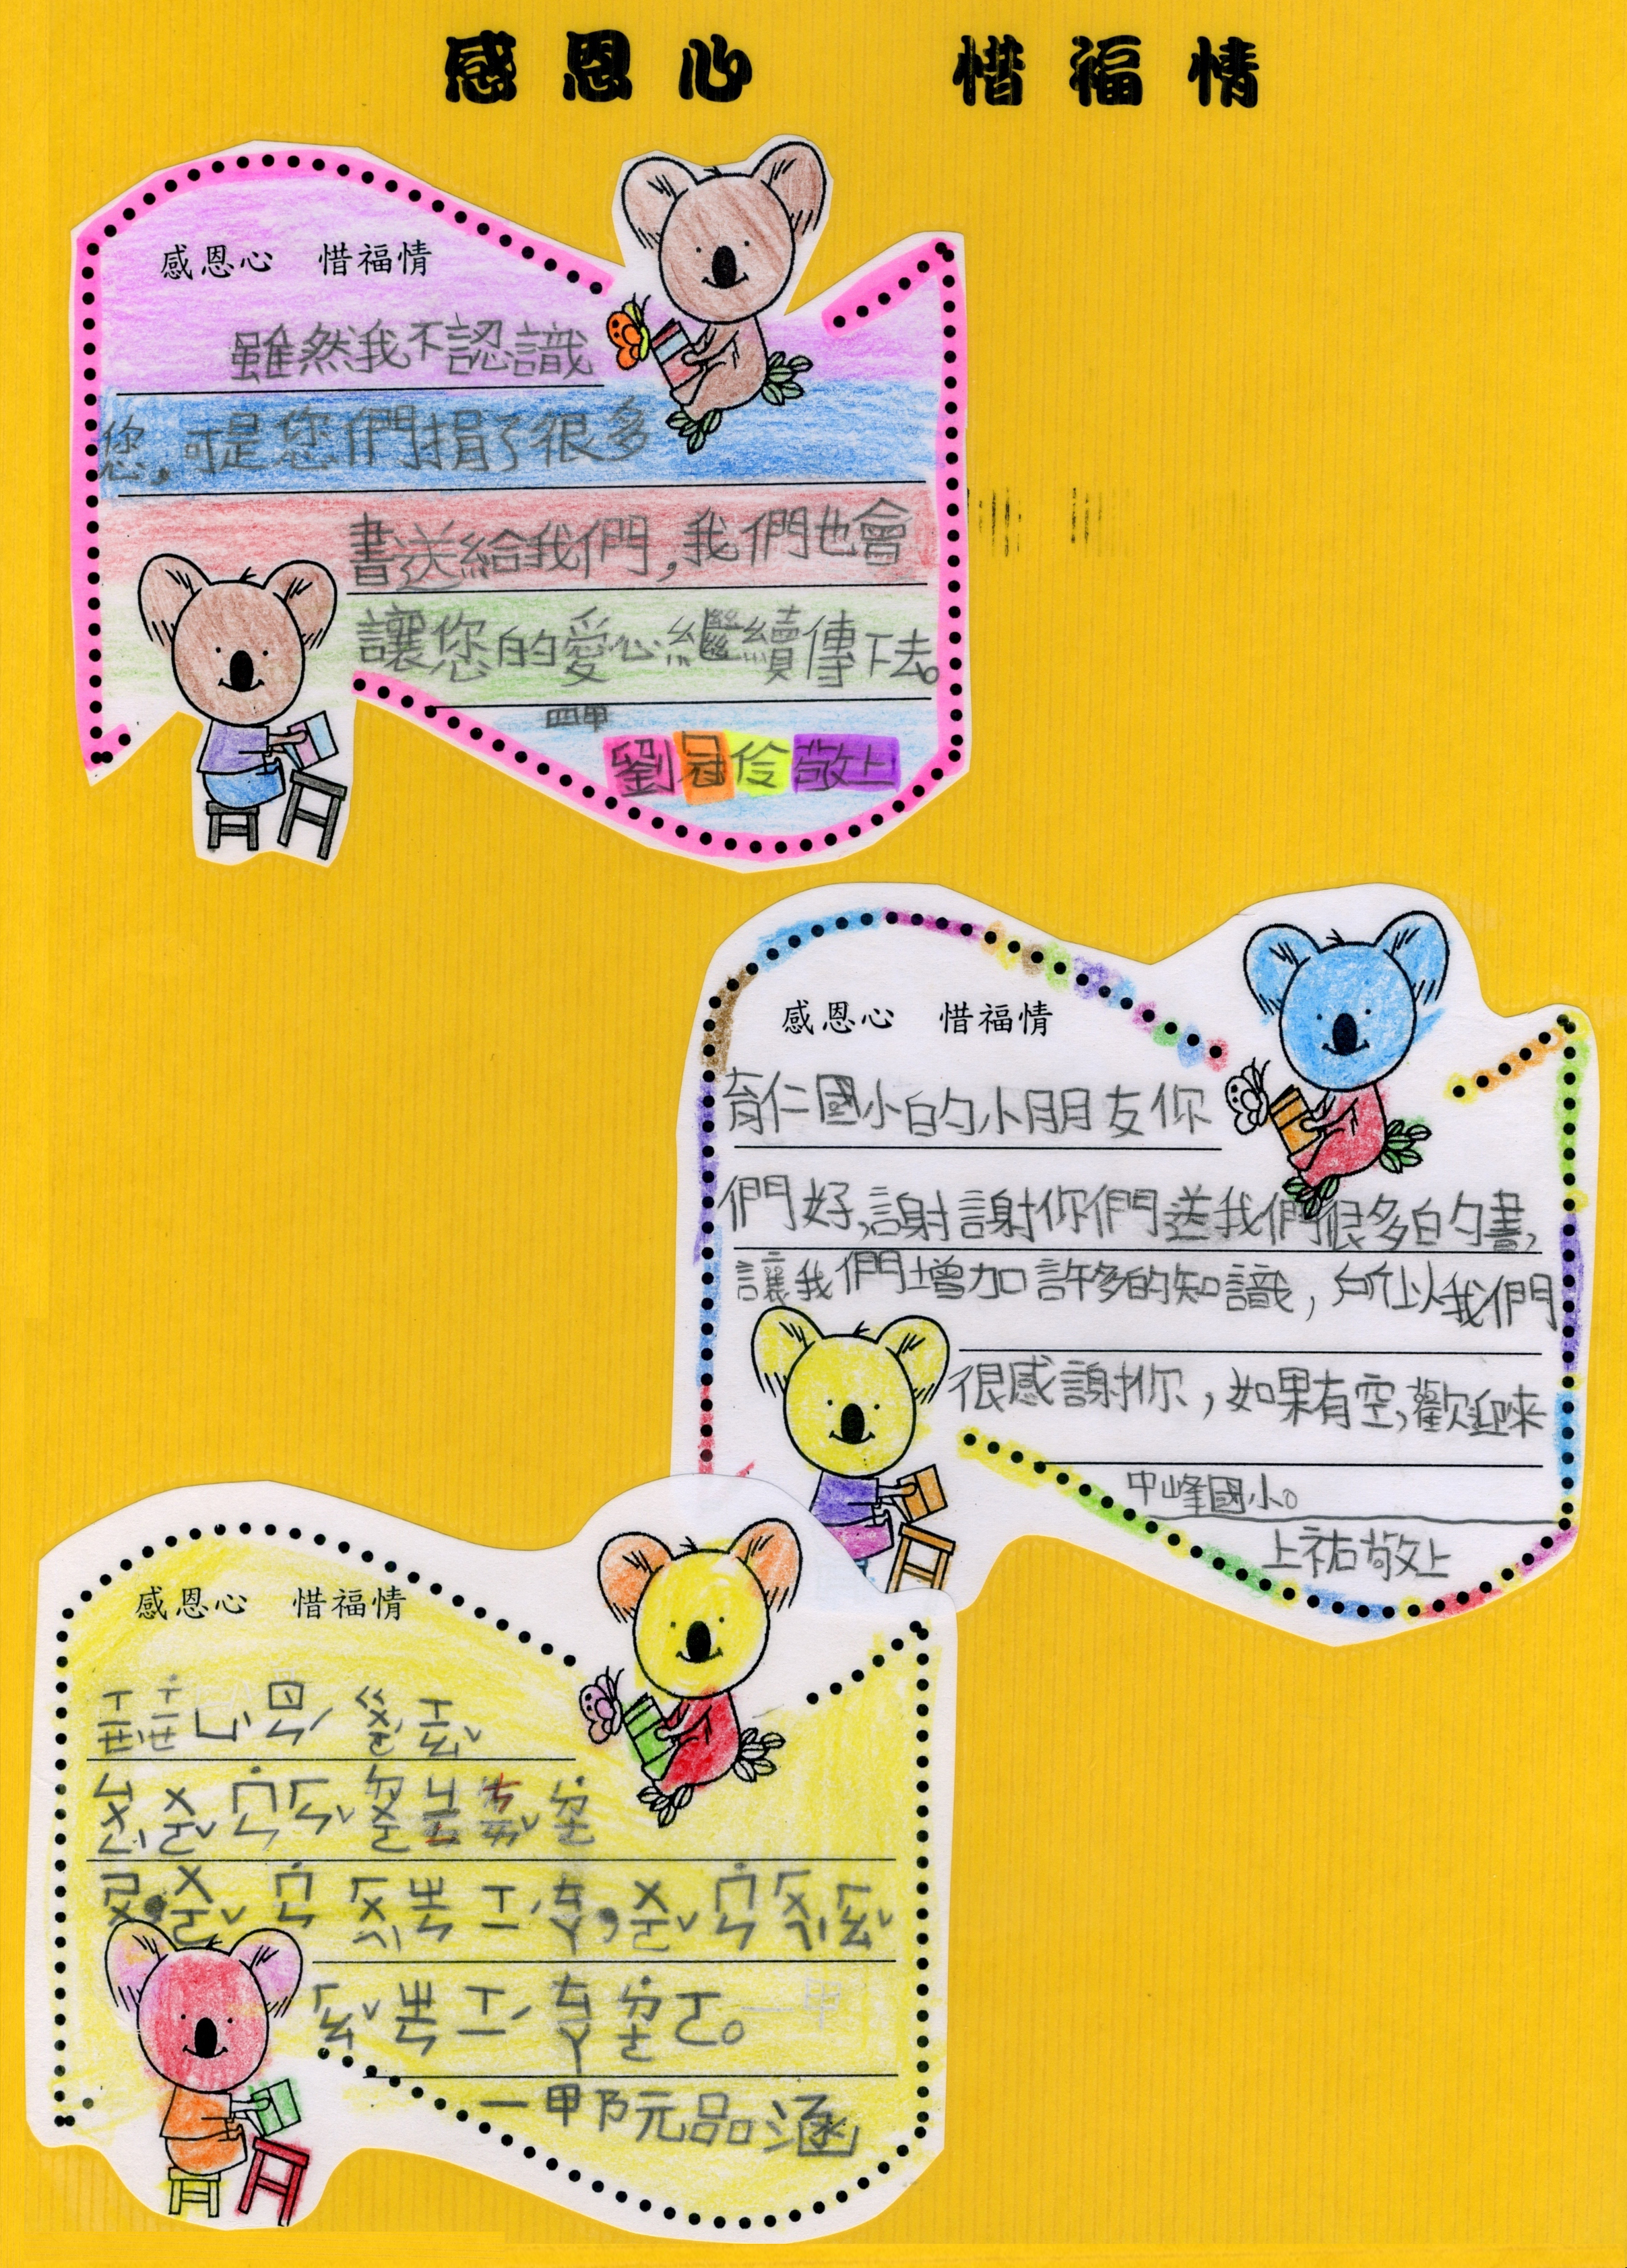 感恩心 惜福情
感恩心 惜福情
雖然我不認識
您,可是您們捐了很多
書送給我們,我們也會
讓您的愛心繼續傳下去。
四甲
劉冠伶敬上
感恩心 惜福情
育仁國小的小朋友你
們好,謝謝你們送我們很多的書,
讓我們增加許多的知識,所以我們
很感謝你,如果有空,歡迎來
中峰國小。
上祐敬上
感恩心 惜福情
ㄒㄧㄝˋ ˙ㄒㄧㄝ
ㄙㄨㄥˋ ㄨㄛˇ ˙ㄇㄣ ㄏㄣˇ ㄉㄨㄛ ˙ㄉㄜ
ㄕㄨ,ㄨㄛˇ ˙ㄇㄣ ㄏㄨㄟˋ ㄓㄣ ㄒㄧˊ ㄊㄚ,ㄨㄛˇ ˙ㄇㄣ ㄏㄨㄟˋ ㄏㄠˇ
ㄏㄠˇ ㄓㄣ ㄒㄧˊ ㄊㄚ ˙ㄉㄜ ㄛ。一甲
一甲阮品涵